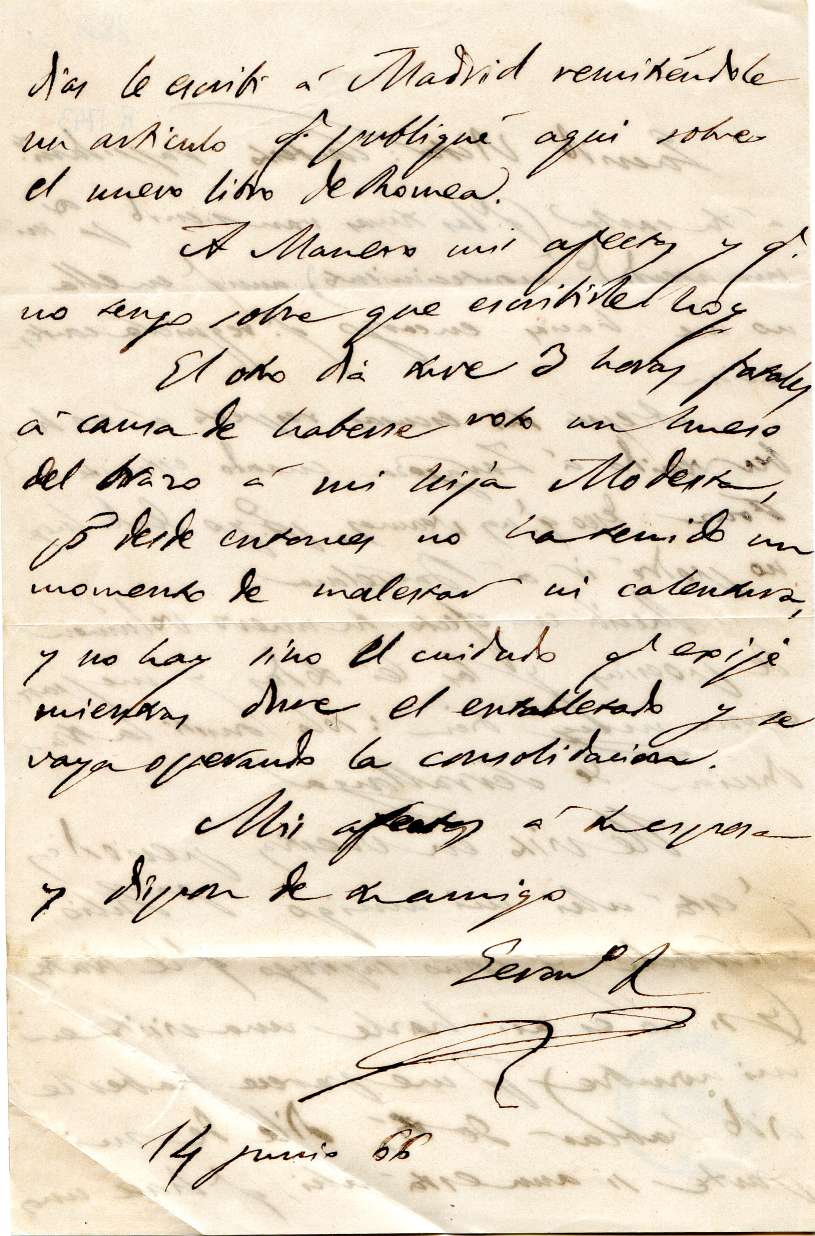 días le escribí á Madrid remitiéndole
un artículo q.e publiqué aqui sobre
el nuevo libro de Romea.
A Manero mis afectos y q.e
no tengo sobre que escribirle hoy
El otro dia tuve 3 horas fatales
á causa de haberse roto un hueso
del brazo á mi hija Modesta,
p.o desde entonces no ha tenido un
momento de malestar ni calentura,
y no hay sino el cuidado q.e exije
mientras dure el entablerado y se
vaya operando la consolidacion.
Mis afectos á tu esposa
y dispon de tu amigo
14 junio 66